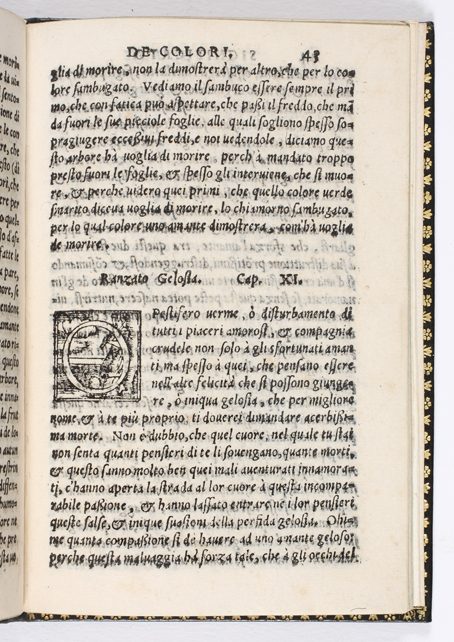 DE COLORI. 43
glia di morire, non la dimostrerà per altro, che per lo co-
lore sambugato. Vediamo il sambuco essere sempre il pri
mo, che con fatica può aspettare, che passi il freddo, che mā
da fuori le sue picciole foglie, alle quali sogliono spesso so-
pragiugere eccessiui freddi, e noi uedendole, diciamo que-
sto arbore hà uoglia di morire, perch'à mandato troppo
presto fuori le foglie, & spesso gli interuiene, che si muo-
re, & perche uidero quei primi, che quello colore uerde
smarito diceua uoglia di morire, lo chiamorno sambugato,
per lo qual colore uno amante dimostrera, com'hà uoglia
de morire.
Ranzato Gelosia. Cap. XI.
O Pestifero uerme, ò disturbamento di
tutti i piaceri amorosi, & compagnia
crudele non solo à gli sfortunati aman
ti, ma spesso à quei, che pensano essere
nell'alte felicità che si possono giunge-
re, ò iniqua gelosia, che per migliore
nome, & à te più proprio, ti douerei dimandare acerbissi-
ma morte. Non è dubbio, che quel cuore, nel quale tu stai
non senta quanti pensieri di te li souengano, quante morti,
& questo sanno molto ben quei mali auenturati innamora-
ti, c'hanno aperta la strada al lor cuore à questa incompa-
rabile passione, & hanno lassato entrare ne i lor pensieri
queste false, & inique suasioni della perfida gelosia. Ohi-
me quanta compassione si de hauere ad uno amante geloso,
perche questa maluaggia hà forza tale, che à gli occhi del